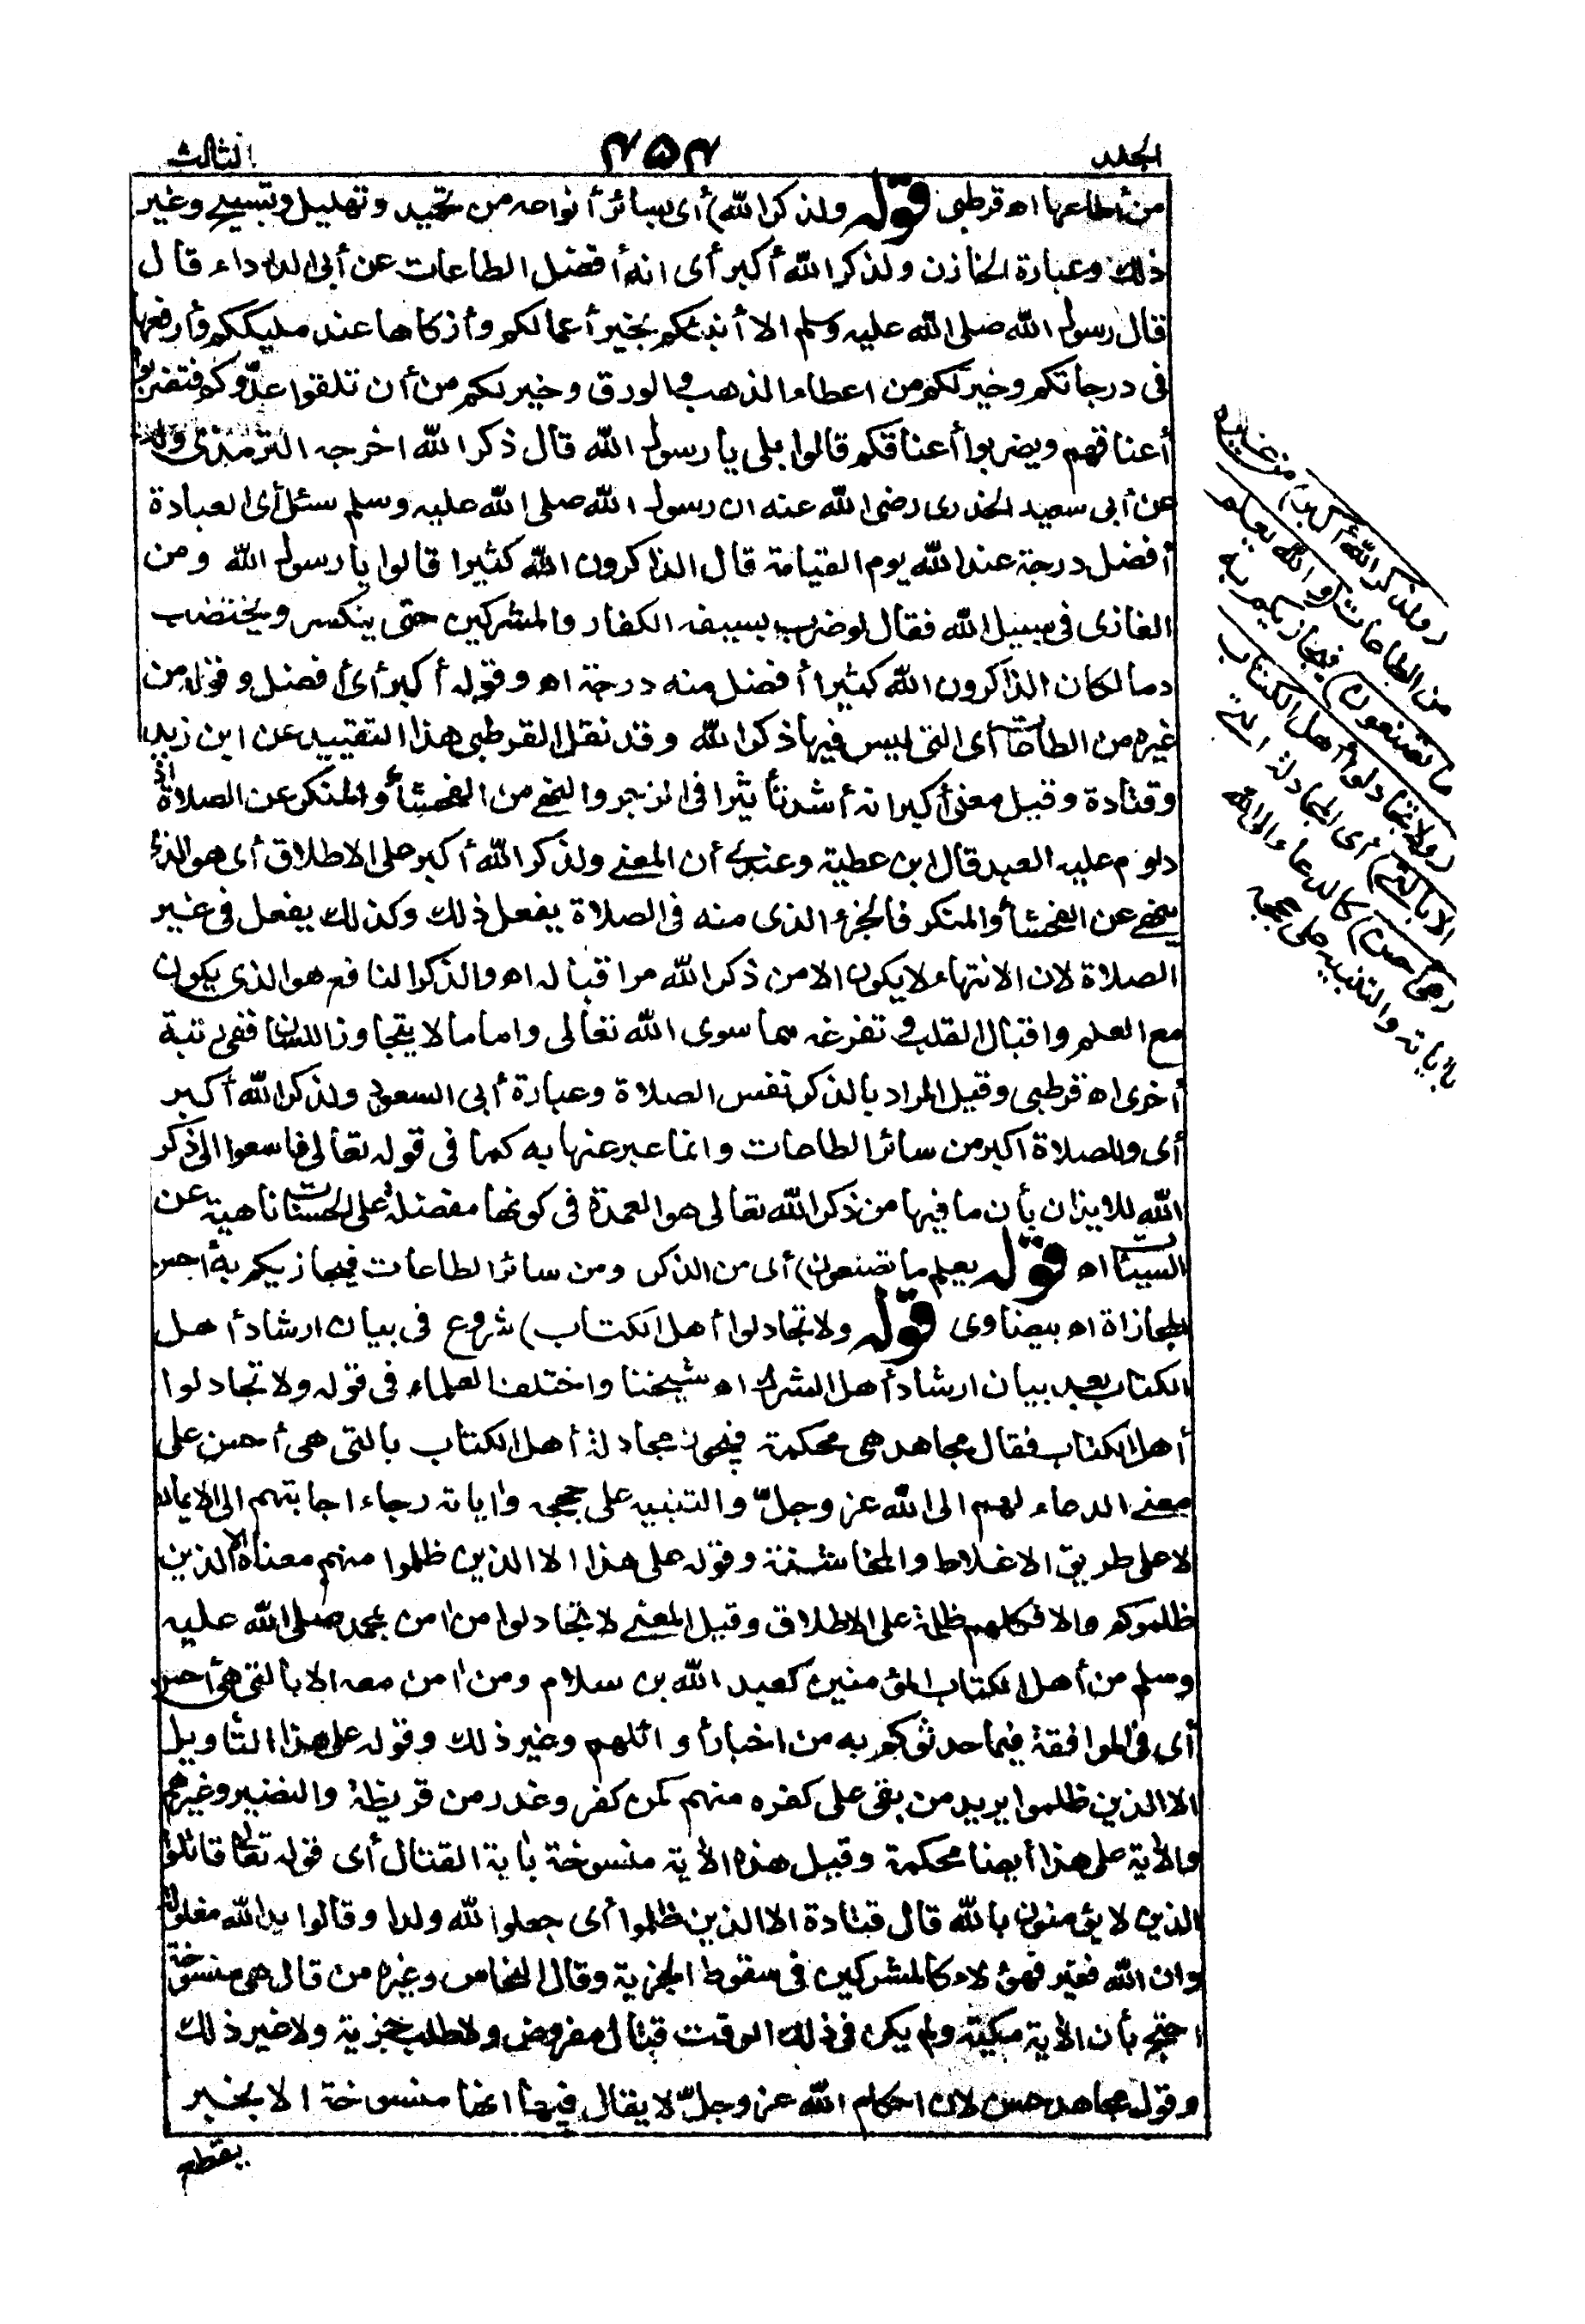 الجلد ٤٥٤ الثالث
من أطاعها اه قرطبى قوله ولذكر الله) أى بسائر أنواعه من تحميد وتهليل وتسبيح وغير
ذلك وعبارة الخازن ولذكر الله أكبر أى انه أفضل الطاعات عن أبى الدرداء قال
قال رسول الله صلى الله عليه وسلم الا أنبئكم بخير أعمالكم وأزكاها عند مليككم وأرفعها
فى درجاتكم وخير لكم من اعطاء الذهب والورق وخير لكم من أن تلقوا عدوكم فتضربوا
أعناقهم ويضربوا أعناقكم قالوا بلى يا رسول الله قال ذكر الله اخرجه الترمذى وله
عن أبى سعيد الخدرى رضى الله عنه ان رسول الله صلى الله عليه وسلم سئل أى العبادة
أفضل درجة عند الله يوم القيامة قال الذاكرون الله كثيرا قالوا يا رسول الله ومن
الغازى فى سبيل الله فقال لو ضرب بسيفه الكفار والمشركين حتى ينكسر ويختضب
دما لكان الذاكرون الله كثيرا أفضل منه درجة اه وقوله أكبر أى أفضل وقوله من
غيره من الطاعات أى التى ليس فيها ذكر الله وقد نقل القرطبى هذا التقييد عن ابن زيد
وقتادة وقيل معنى أكبر انه أشد تأثيرا فى الزجر والنهى من الفحشاء والمنكر عن الصلاة اذ
دلوم عليه العبد قال ابن عطية وعندى أن المعنى ولذكر الله أكبر على الاطلاق أى هو الذى
ينهى عن الفحشاء والمنكر فالجزء الذى منه فى الصلاة يفعل ذلك وكذلك يفعل فى غير
الصلاة لان الانتهاء لا يكون الا من ذكر الله مراقبا له اه والذكر النافع هو الذى يكون
مع العلم واقبال القلب وتفرغه مما سوى الله تعالى واما ما لا يتجاوز اللسان ففى رتبة
أخرى اه قرطبى وقيل المراد بالذكر نفس الصلاة وعبارة أبى السعود ولذكر الله أكبر
أى وللصلاة اكبر من سائر الطاعات وانما عبر عنها به كما فى قوله تعالى فاسعوا الى ذكر
الله للايذان بأن ما فيها من ذكر الله تعالى هو العمدة فى كونها مفضلة على الحسنات ناهية عن
السيئات اه قوله يعلم ما تصنعون) أى من الذكر ومن سائر الطاعات فيجازيكم به أحسن
المجازاة اه بيضاوى قوله ولا تجادلوا أهل الكتاب) شروع فى بيان ارشاد أهل
الكتاب بعد بيان ارشاد أهل الشرك اه شيخنا واختلف العلماء فى قوله ولا تجادلوا
أهل الكتاب فقال مجاهد هى محكمة فيجوز مجادلة أهل الكتاب بالتى هى أحسن على
معنى الدعاء لهم الى الله عز وجل والتنبيه على حججه وآياته رجاء اجابتهم الى الايمان
لا على طريق الاغلاظ والمخاشنة وقوله على هذا الا الذين ظلموا منهم معناه الا الذين
ظلموكم والا فكلهم ظلمة على الاطلاق وقيل المعنى لا تجادلوا من آمن بمحمد صلى الله عليه
وسلم من أهل الكتاب المؤمنين كعبد الله بن سلام ومن آمن معه الا بالتى هى أحسن
أى فى الموافقة فيما حدثوكم به من اخبار أوائلهم وغير ذلك وقوله على هذا التأويل
الا الذين ظلموا يريد من بقى على كفره منهم كمن كفر وغدر من قريظة والنضير وغيرهم
والآية على هذا أيضا محكمة وقيل هذه الآية منسوخة بآية القتال أى قوله تعالى قاتلوا
الذين لا يؤمنون بالله قال قتادة الا الذين ظلموا أى جعلوا لله ولدا وقالوا يد الله مغلولة
وان الله فقير فهؤلاء كالمشركين فى سقوط الجزية وقال النحاس وغيره من قال هى منسوخة
احتج بأن الآية مكية ولم يكن فى ذلك الوقت قتال مفروض ولا طلب جزية ولا غير ذلك
وقول مجاهد حسن لان احكام الله عز وجل لا يقال فيها انها منسوخة الا بخبر
يقطع
(ولذكر الله أكبر) من غيره
من الطاعات (والله يعلم
ما تصنعون) فيجازيكم به
(ولا تجادلوا أهل الكتاب
الا بالتى) أى المجادلة التى
(هى أحسن) كالدعاء الى الله
بآياته والتنبيه على حججه